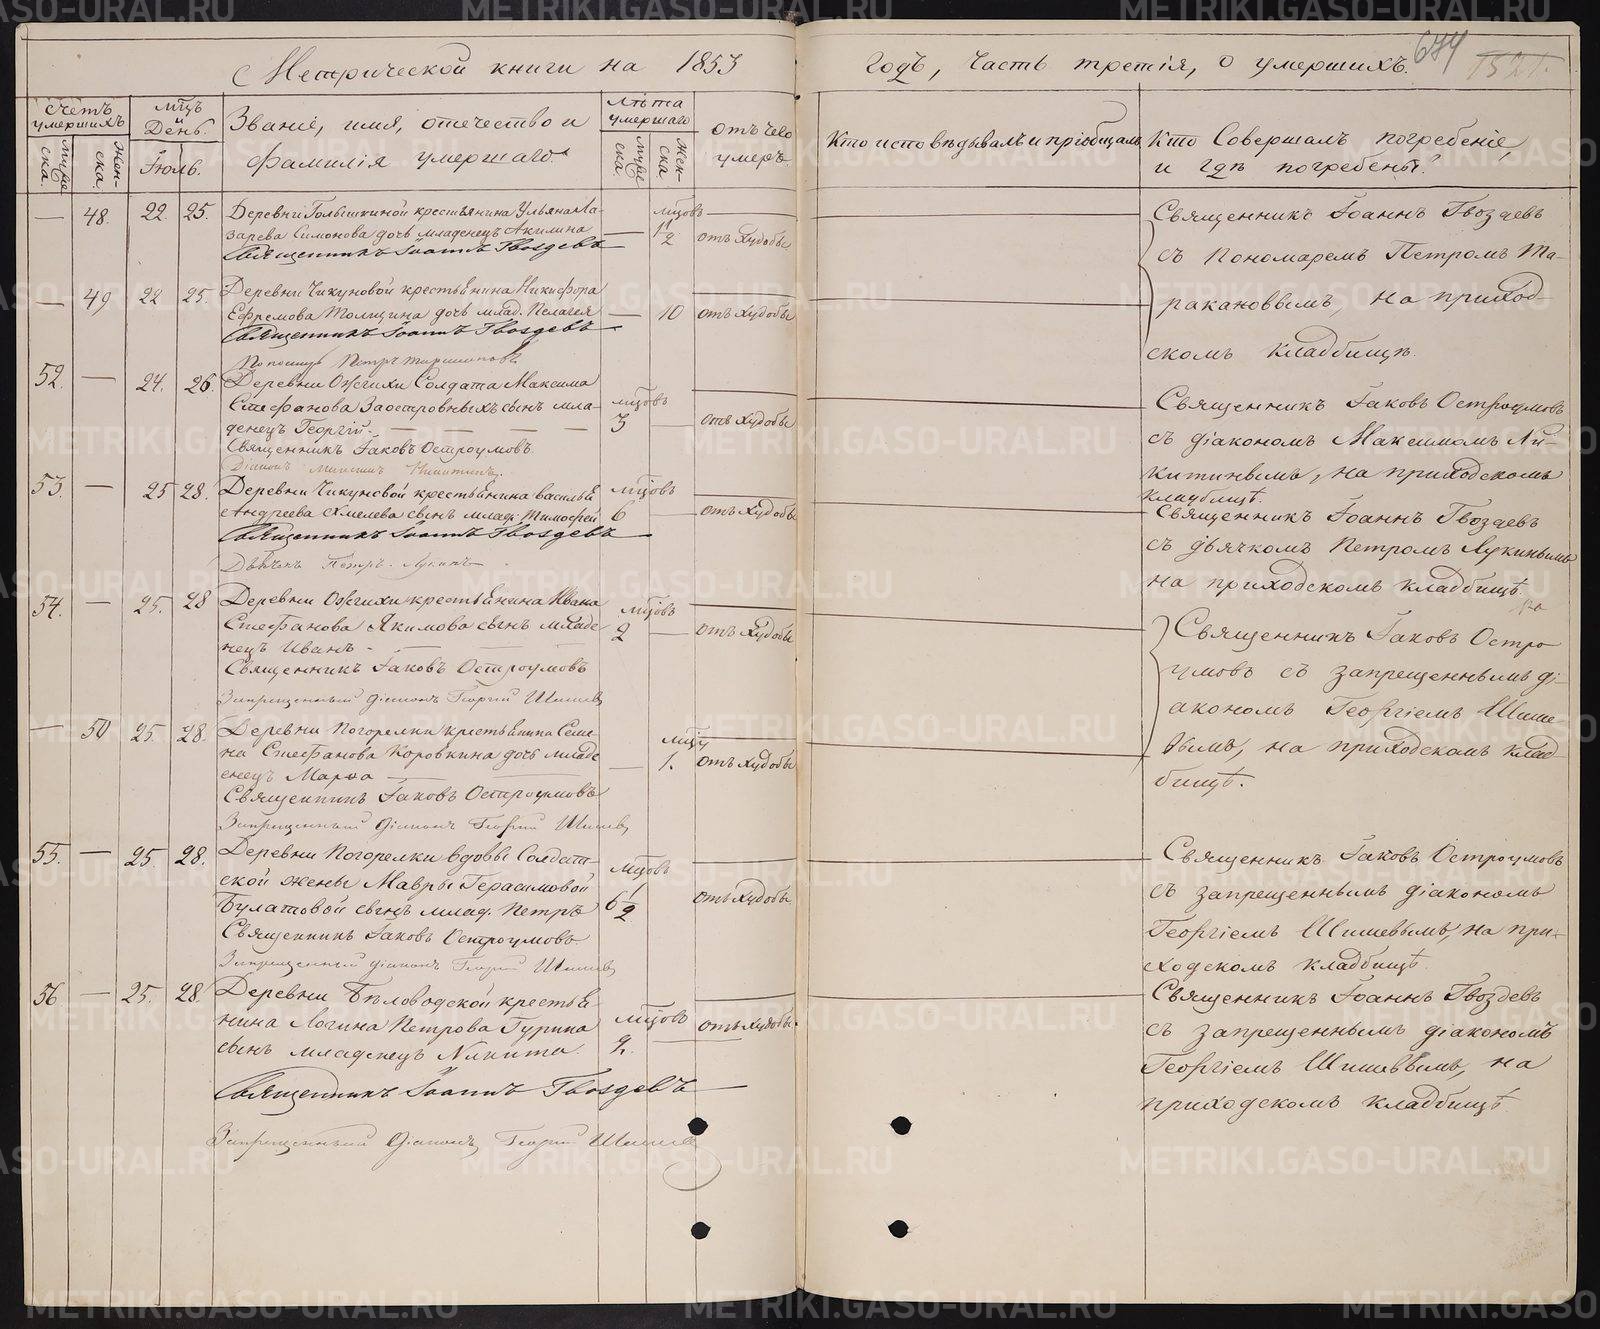 Метрической книги на 1853
годъ, часть третія, о умершихъ.
674
1521.
счетъ умершихъ
мужес-
ска.
Жен-
ска.
мѣцъ
и
День.
Іюль.
Званіе, имя, отечество и
фамилія умершаго.
лѣта
умершаго
муже
ска.
Жен-
ска
отъ чего
умеръ.
Кто исповѣдывалъ и пріобщалъ
Кто Совершалъ погребеніе,
и гдѣ погребены?
— 48. 22 25.
Деревни Голышкиной крестьянина Ульяна Ла-
зарева Симонова дочь младенецъ Акилина
Священникъ Іоаннъ Гвоздевъ
мѣцовъ
— 1½
отъ худобы
Священникъ Іоаннъ Гвоздевъ
съ Пономаремъ Петромъ Та-
ракановымъ, на приход-
скомъ кладбищѣ.
— 49 22 25.
Деревни Чикуновой крестьянина Никифора
Ефремова Толщина дочь млад. Пелагея
Священникъ Іоаннъ Гвоздевъ
Пономарь Петръ
— 10
отъ худобы
52. — 24. 26.
Деревни Ожгихи Солдата Максима
Стефанова Заостровныхъ сынъ мла-
денецъ Георгій.
Священникъ Іаковъ Остроумовъ.
Діаконъ Никитинъ.
мѣцовъ
3 —
отъ худобы
Священникъ Іаковъ Остроумовъ
съ діакономъ Максимомъ Ни-
китинымъ, на приходскомъ
кладбищѣ.
53. — 25 28.
Деревни Чикуновой крестьянина Василья
Андреева Хмелева сынъ млад. Тимофей
Священникъ Іоаннъ Гвоздевъ
Дьячекъ Петръ Лукинъ
мѣцовъ
6 —
отъ худобы
Священникъ Іоаннъ Гвоздевъ
съ дьячкомъ Петромъ Лукинымъ
на приходскомъ кладбищѣ.
54. — 25. 28
Деревни Ожгихи крестьянина Ивана
Стефанова Якимова сынъ младе-
нецъ Иванъ.
Священникъ Іаковъ Остроумовъ
Запрещенный діаконъ Георгій Шишевъ
мѣцовъ
2 —
отъ худобы
Священникъ Іаковъ Остро
умовъ съ запрещеннымъ ді-
акономъ Георгіемъ Шише-
вымъ, на приходскомъ клад-
бищѣ.
— 50 25. 28.
Деревни Погорелки крестьянина Семе-
на Стефанова Коровкина дочь младе-
енецъ Марѳа
Священникъ Іаковъ Остроумовъ
Запрещенный діаконъ Георгій Шишевъ
мѣцу
— 1.
отъ худобы
55. — 25. 28.
Деревни Погорелки вдовы Солдат-
ской жены Мавры Герасимовой
Булатовой сынъ млад. Петръ
Священникъ Іаковъ Остроумовъ
Запрещенный діаконъ Георгій Шишевъ
мѣцовъ
6½
отъ худобы
Священникъ Іаковъ Остроумовъ
съ запрещеннымъ діакономъ
Георгіемъ Шишевымъ, на при-
ходскомъ кладбищѣ.
56 — 25. 28.
Деревни Бѣловодской крестья-
нина Логина Петрова Гурина
сынъ младенецъ Никита.
Священникъ Іоаннъ Гвоздевъ
Запрещенный діаконъ Георгій Шишевъ
мѣцовъ
2.
отъ худобы.
Священникъ Іоаннъ Гвоздевъ
съ запрещеннымъ діакономъ
Георгіемъ Шишевымъ, на
приходскомъ кладбищѣ
METRIKI.GASO-URAL.RU